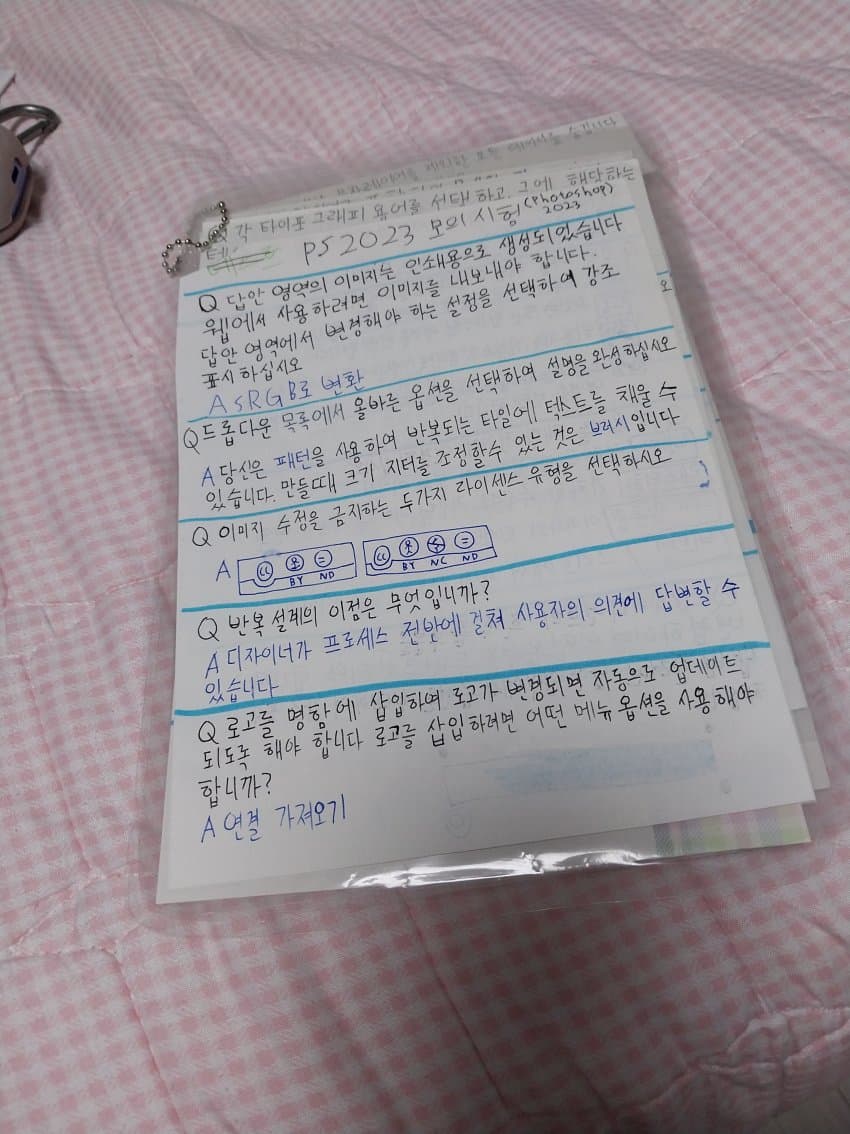 각 타이포그래피 용어를 선택하고, 그에 해당하는
PS2023 모의시험 (Photoshop) 2023
Q 답안 영역의 이미지는 인쇄용으로 생성되있습니다
웹에서 사용하려면 이미지를 내보내야 합니다.
답안 영역에서 변경해야 하는 설정을 선택하여 강조
표시하십시오
A sRGB로 변환
Q 드롭다운 목록에서 올바른 옵션을 선택하여 설명을 완성하십시오
A 당신은 패턴을 사용하여 반복되는 타일에 텍스트를 채울 수
있습니다. 만들때 크기 지터를 조정할수 있는 것은 브러시입니다
Q 이미지 수정을 금지하는 두가지 라이센스 유형을 선택하시오
A cc BY ND cc BY NC ND
Q 반복 설계의 이점은 무엇입니까?
A 디자이너가 프로세스 전반에 걸쳐 사용자의 의견에 답변할 수
있습니다
Q 로고를 명함에 삽입하여 로고가 변경되면 자동으로 업데이트
되도록 해야 합니다 로고를 삽입하려면 어떤 메뉴 옵션을 사용해야
합니까?
A 연결 가져오기